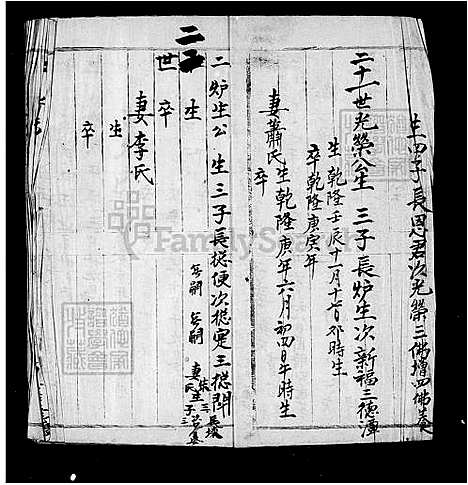 生四子長恩君次光榮三佛壇四佛
二十一世光榮公生 三子長炉生次新福三德潭
生乾隆壬辰十一月十七日卯時生
卒乾隆庚寅年
妻蕭氏生乾隆庚年六月初四日午時生
卒
二炉生公 生三子長捴便次捴寔三捴
另嗣 另嗣
妻氏
二二世
生
卒
妻李氏
生
卒
FamilySearch